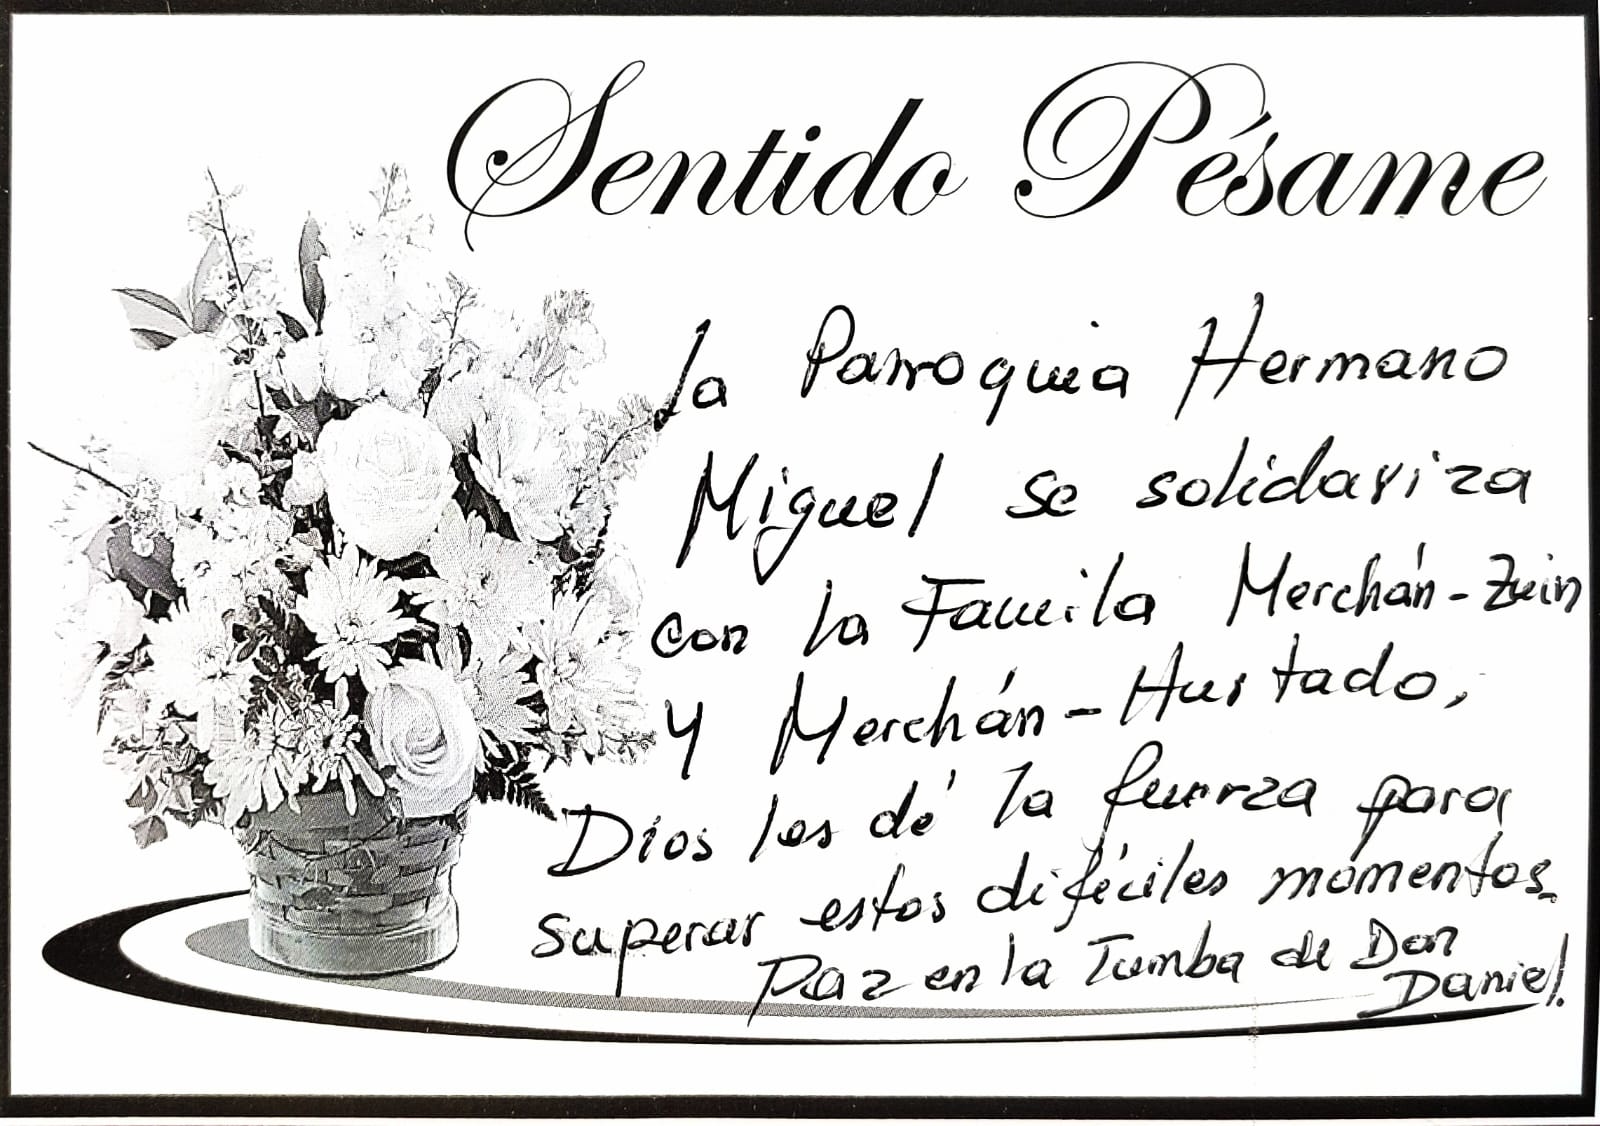 Sentido Pésame
La Parroquia Hermano
Miguel se solidariza
con la Famila Merchán-Zuin
y Merchán-Hurtado,
Dios les dé la fuerza para
superar estos difíciles momentos.
Paz en la Tumba de Don
Daniel.